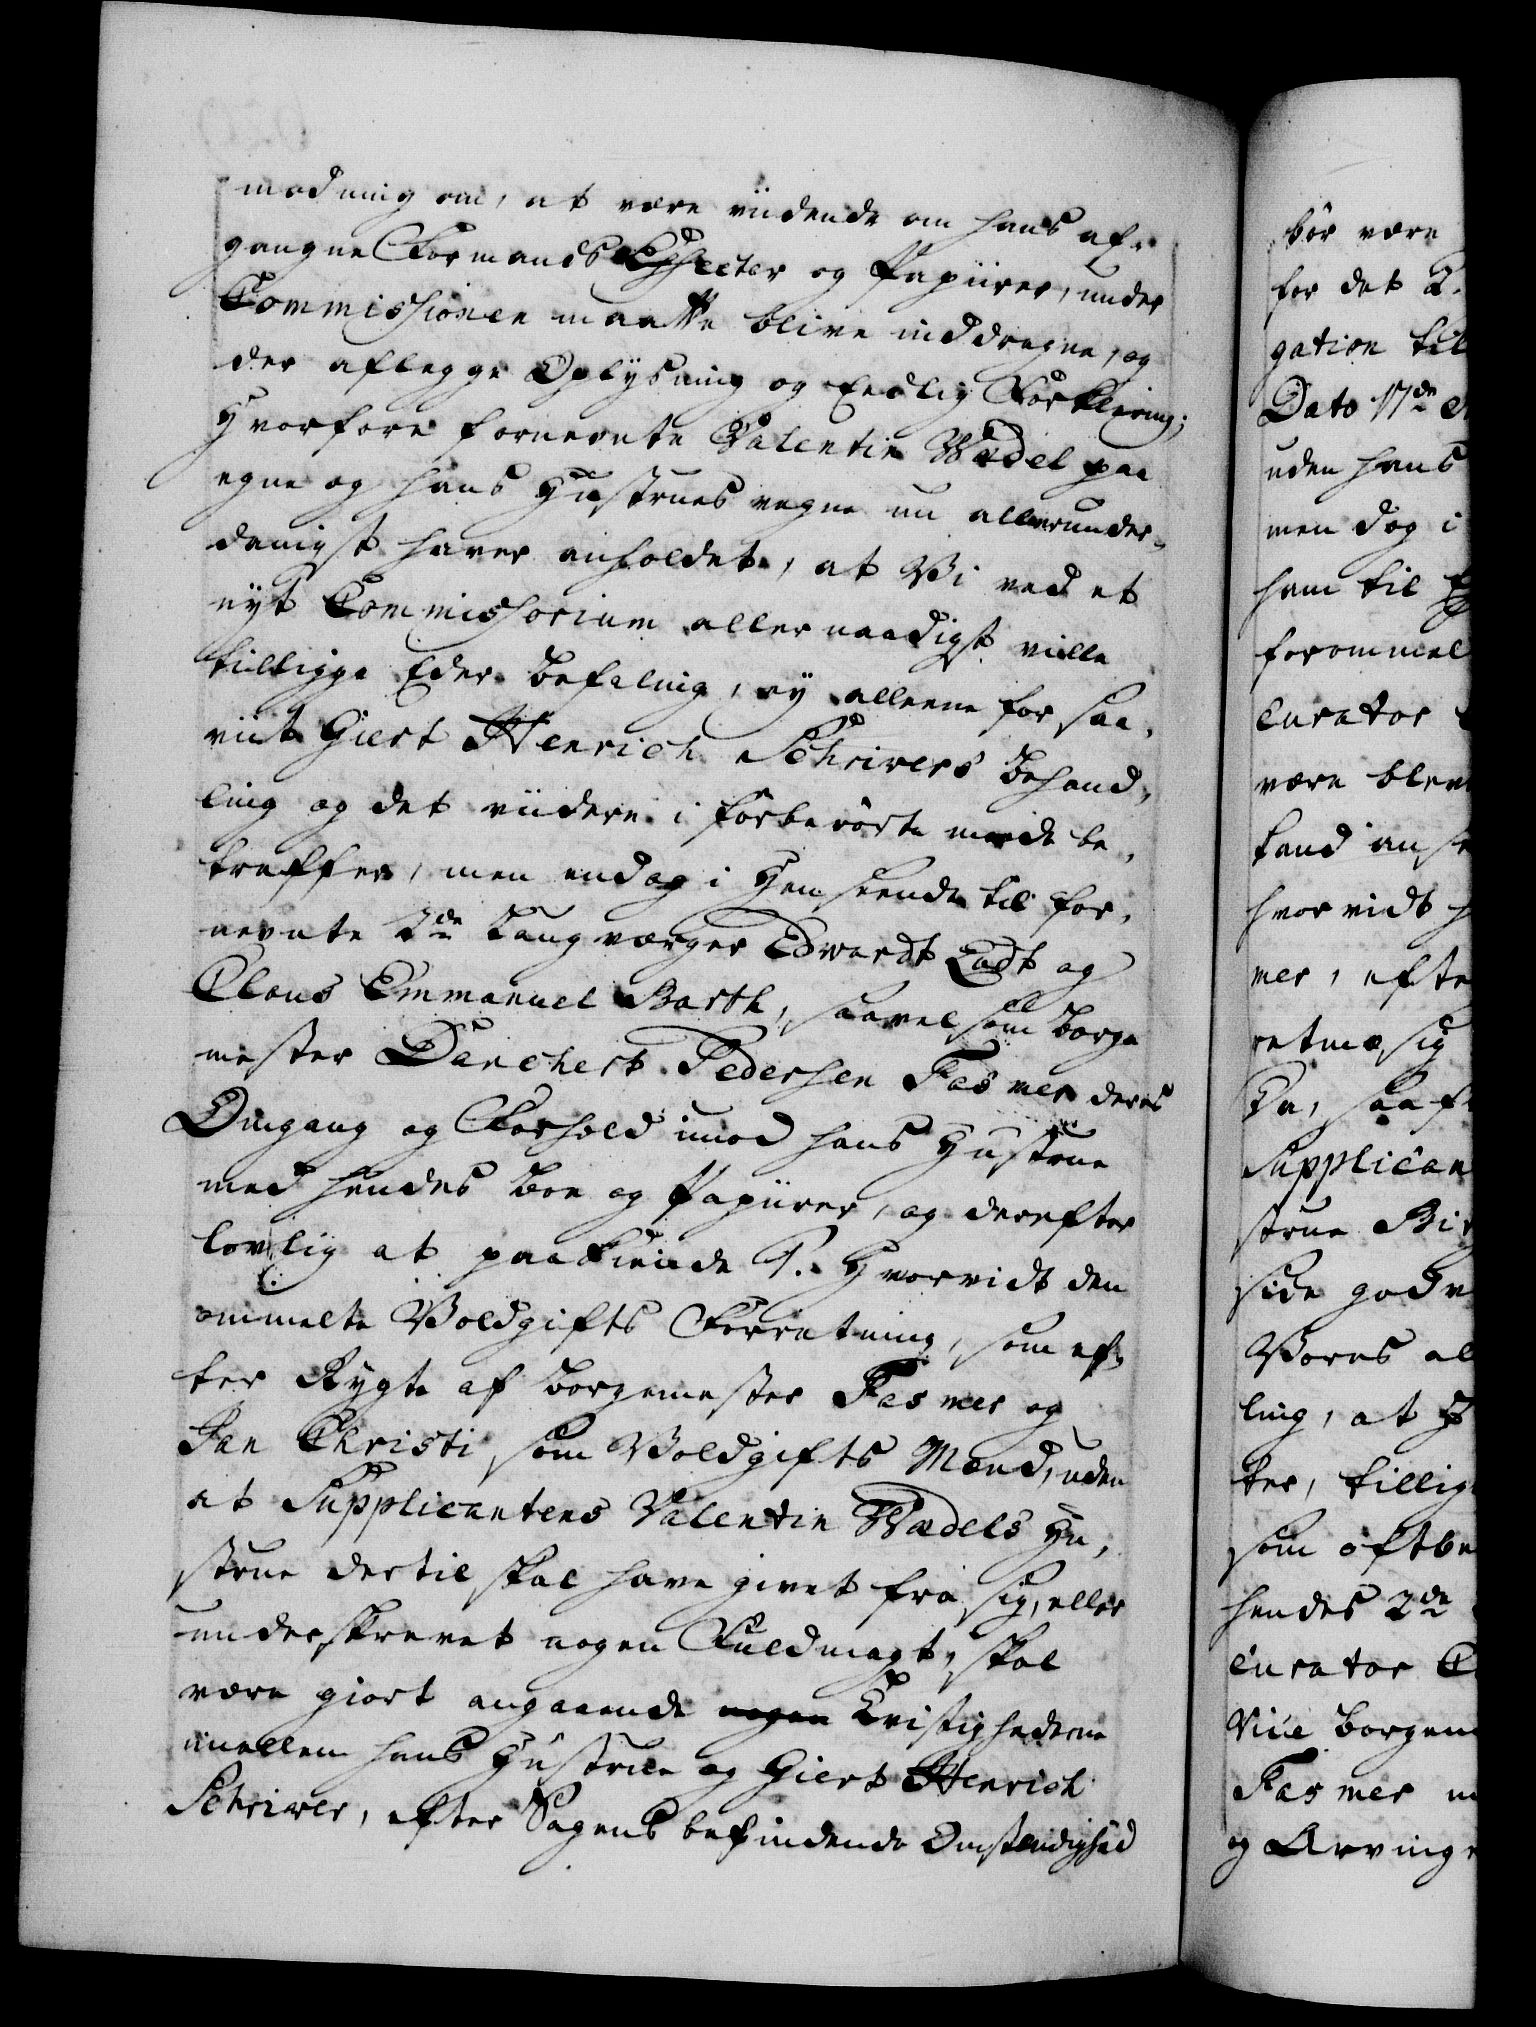 modning om, at være viidende om hans af-
gangne Formands Effecter og Papiirer, under
Commissionen maatte blive inddragne, og
der aflegge Oplysning og Eedlig Forklaring;
Hvorfore fornevnte Valentin Wedel paa
egne og hans Hustrues vegne nu allerunder-
danigst haver anholdet, at Vi ved et
nyt Commissorium allernaadigst ville
tillegge Eder Befaling, ey alleene for saa-
viit Giert Henrich Schrivers Behand-
ling og det viidere i forberørte maade be-
treffer, men endog i Henseende til for-
nevnte 2de Laugværger Edwardt Eadt og
Claus Emmanuel Barth, saavelsom Borge-
mester Danchert Pedersen Fasmer deres
Omgang og Forhold imod hans Hustrue
med hendes Boe og Papiirer, og derefter
lovlig at paakiende 1. Hvorvidt den
ommelte Voldgifts Forretning, som ef-
ter Rygte af Borgemester Fasmer og
Jan Christi som Voldgifts Mænd, uden
at Supplicantens Valentin Wedels Hu-
strue dertil skal have givet fra sig, eller
underskrevet nogen Fuldmagt, skal
være giort angaaende nogen Tvistighederne
imellem hans Hustrue og Giert Henrich
Schriver, efter Sagens befindende Omstændighed

bør være
for det 2.
gation til
Dato 17de
uden hans
men dog i
ham til
forommel
Curator
være blev
tand anse
hvorvidt
mer, efte
retmæsig
Da, saa
Supplican
strue
side
Vores al
ling, at
ter, tillig
som oftbe
hendes 2de
Curator
Vice Borgem
Fasmer
og Arving